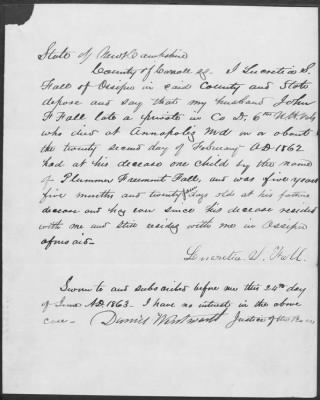 State of New Hampshire
County of Carroll ss. I Lucretia S.
Fall of Ossipee in said County and State
depose and say that my husband John
F Fall late a private in Co D. 6th N.H. Vols
who died at Annapolis Md on or about
the twenty second day of February AD 1862
had at his decease one child by the name
of Plummer Freemont Fall, and was five years
five months and twenty days old at his fathers
decease and has ever since his decease resided
with me and still resides with me in Ossipee
aforesaid.
Lucretia S. Fall.
Sworn to and subscribed before me this 24th day
of June AD. 1863. I have no interest in the above
case. Daniel Wentworth Justice of the Peace